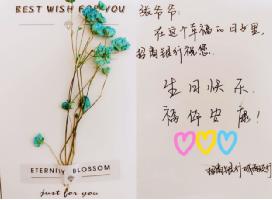 BEST WISH FOR YOU
ETERNITY BLOSSOM
just for you
张爷爷：
在这个幸福的日子里，
招商银行祝您：
生日快乐、
福体安康！